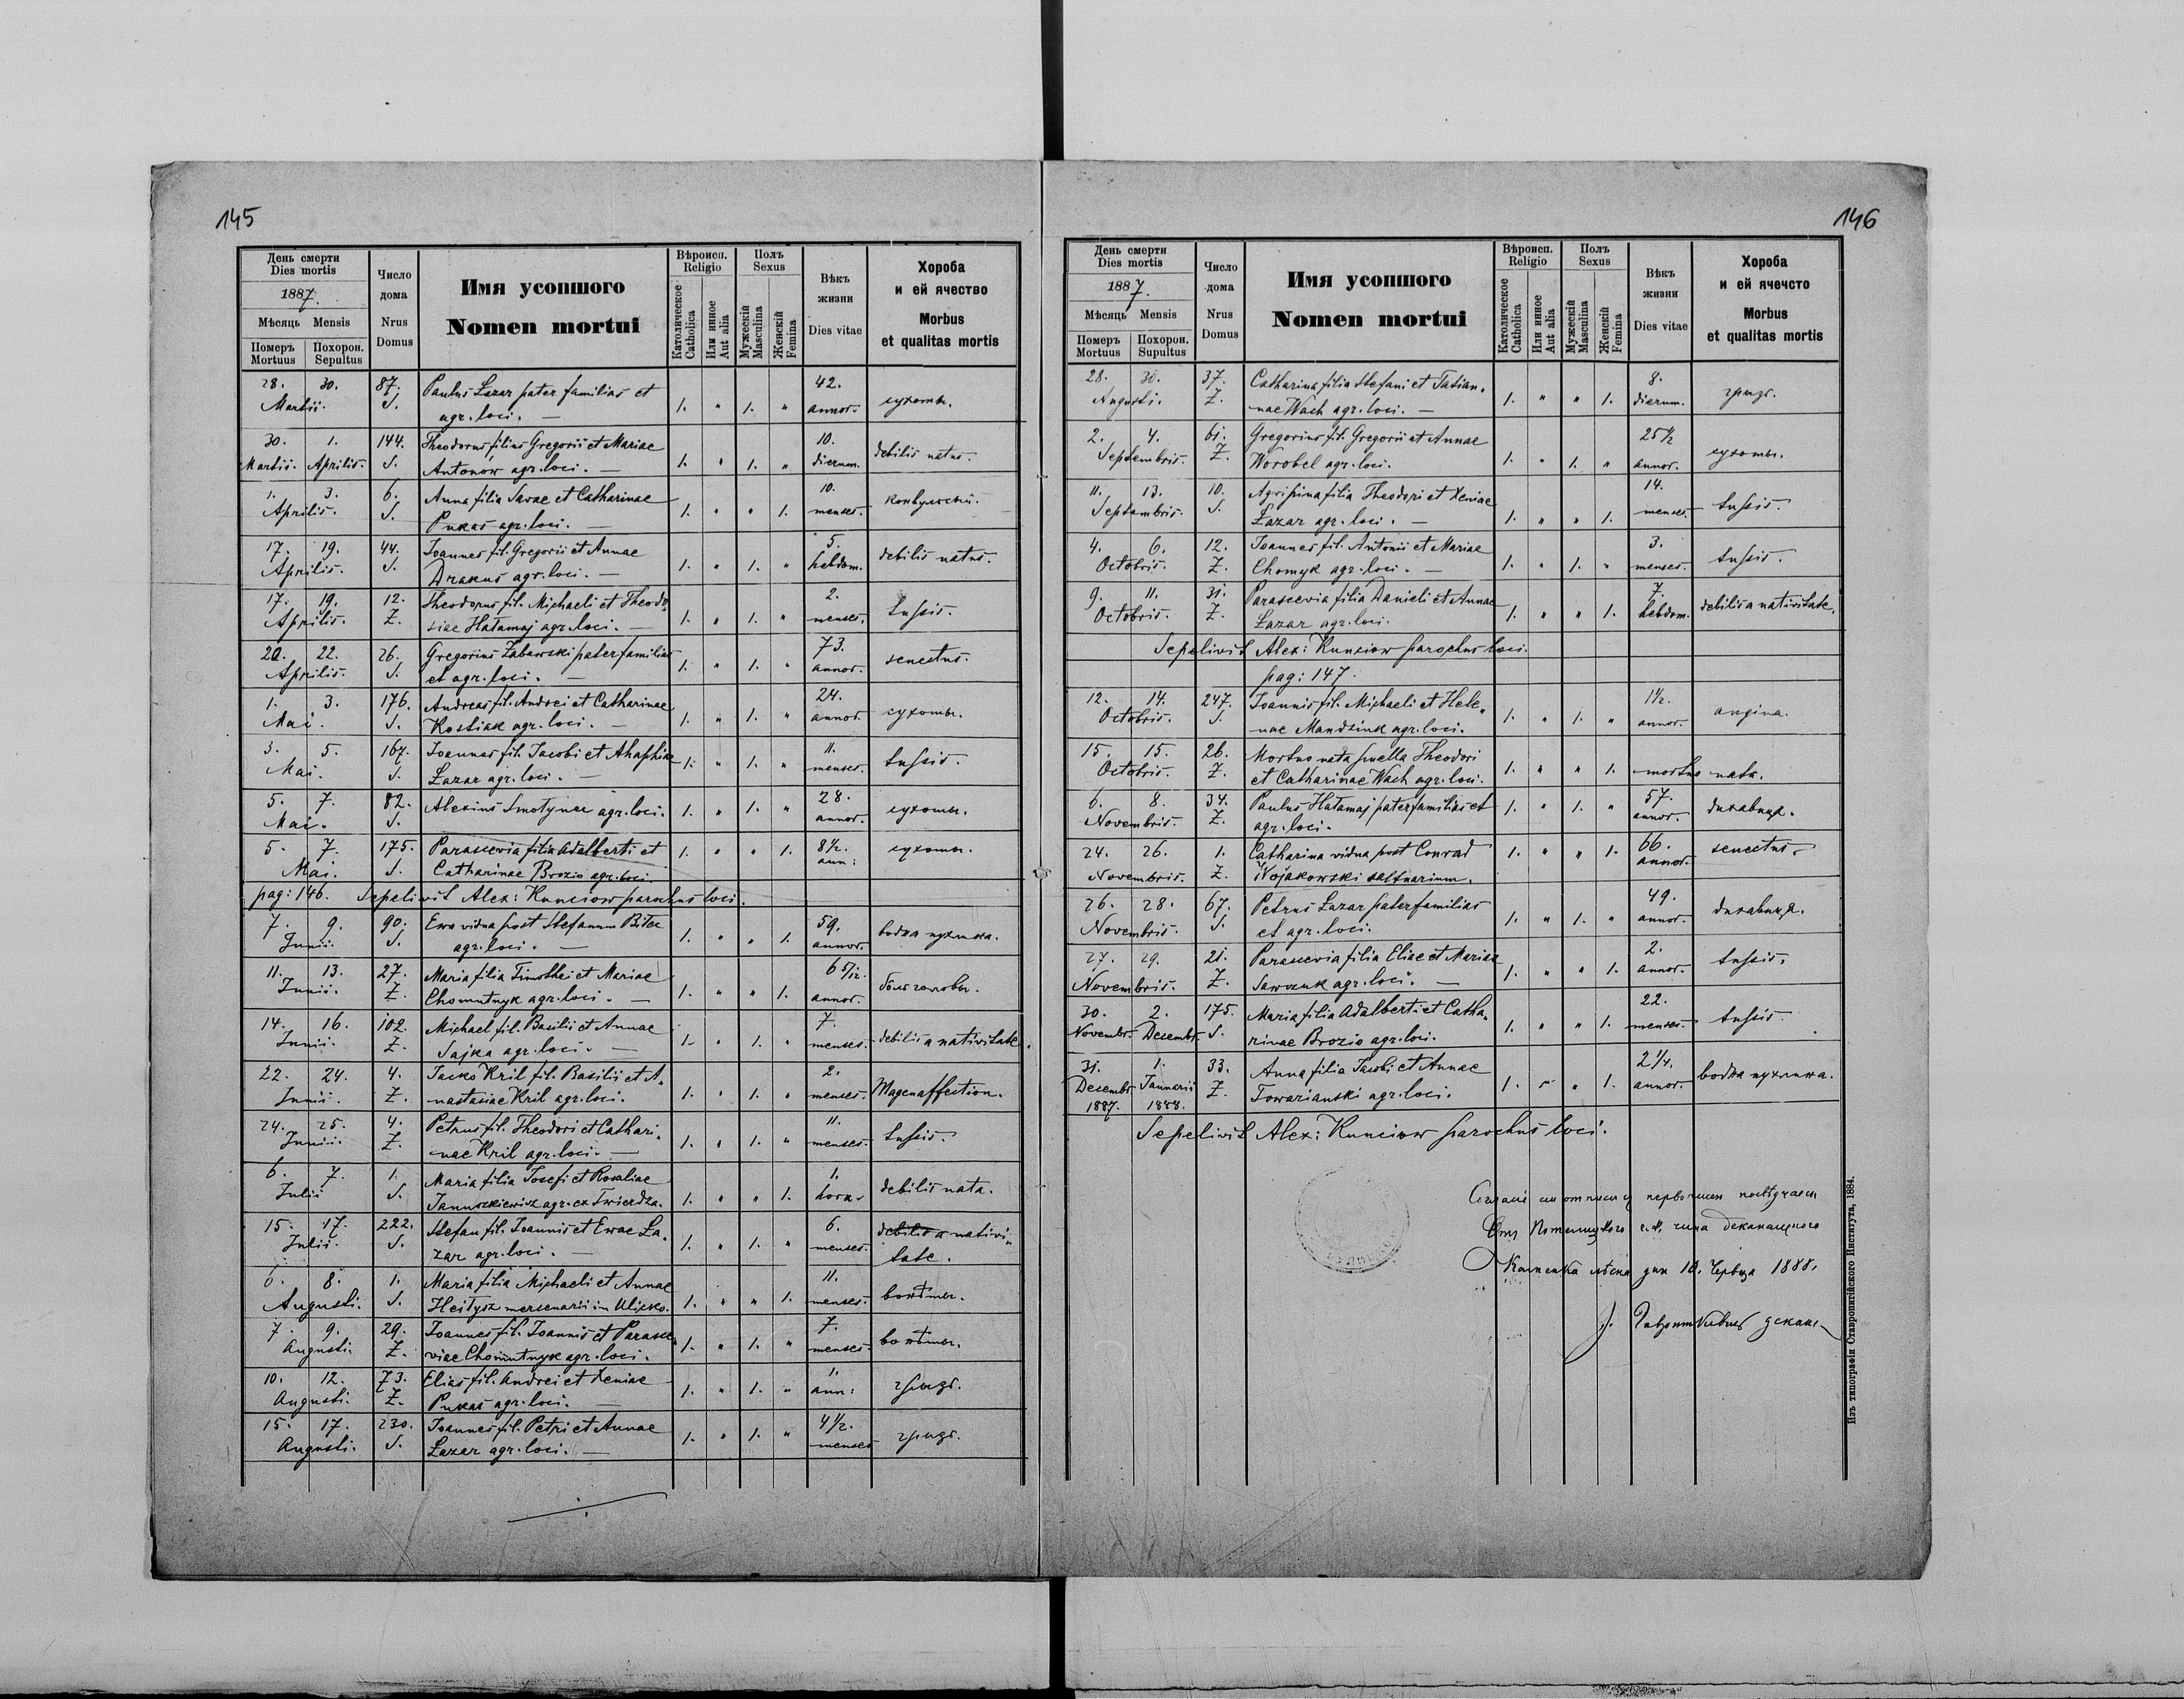 145
День смерти
Dies mortis
1887.
Мѣсяць Mensis
Померъ Похорон.
Mortuus Sepultus
Число дома
Nrus Domus
Имя усопшого
Nomen mortui
Вѣроисп.
Religio
Католическое Catholica
Или инное Aut alia
Полъ
Sexus
Мужескій Masculina
Женскій Femina
Вѣкъ жизни
Dies vitae
Хороба
и ей ячество
Morbus
et qualitas mortis
28. 30. 87. Paulus Lazar pater familias et 42.
Martii. S. agr. loci. — 1. " 1. " annor. сухоты.
30. 1. 144. Theodorus filius Gregorii et Mariae 10.
Martii. Aprilis. S. Antonów agr. loci. — 1. " 1. " dierum. debilis natus.
1. 3. 6. Anna filia Savae et Catharinae 10.
Aprilis. S. Pukas agr. loci. — 1. " " 1. menses.
17. 19. 44. Joannes fil. Gregorii et Annae 5.
Aprilis. S. Drakus agr. loci. — 1. " 1. " hebdom. debilis natus.
17. 19. 12. Theodorus fil. Michaeli et Theodo„ 2.
Aprilis. Z. siae Hałamaj agr. loci. — 1. " 1. " menses. tussis.
20. 22. 26. Gregorius Zabawski pater familias 73.
Aprilis. S. et agr. loci. — 1. " 1. " annor. senectus.
1. 3. 176. Andreas fil. Andrei et Catharinae 24.
Mai. S. Kostiak agr. loci. — 1. " 1. " annor. сухоты.
3. 5. 167. Joannes fil. Jacobi et Ahaphiae 11.
Mai. S. Łazar agr. loci. — 1. " 1. " menses. tussis.
5. 7. 82. Alexius Smotynec agr. loci. 1. " 1. " 28.
Mai. S. annor. сухоты.
5. 7. 175. Parascevia filia Adalberti et 1. " " 1. 8½.
Mai. S. Catharinae Brozio agr. loci. ann: сухоты.
pag: 146. Sepelivit Alex: Kunciow parochus loci.
7. 9. 90. Ewa vidua post Stefanum Bilec 59.
Junii. S. agr. loci. — 1. " " 1. annor. водна пухлина.
11. 13. 27. Maria filia Timothei et Mariae 6 5/12.
Junii. Z. Chomutnyk agr. loci. — 1. " " 1. annor. боль головы.
14. 16. 102. Michael fil. Basilii et Annae 7.
Junii. Z. Sajka agr. loci. — 1. " 1. " menses. debilis a nativitate.
22. 24. 4. Jacko Kril fil. Basilii et A„ 2.
Junii. Z. nastasiae Kril agr. loci. 1. " 1. " menses. Magenaffection.
24. 25. 4. Petrus fil. Theodori et Cathari„ 11.
Junii. Z. nae Kril agr. loci. — 1. " 1. " menses. tussis.
6. 7. 1. Maria filia Josefi et Rosaliae 1.
Julii S. Januszkiewicz agr. ex Twierdza. 1. " " 1. hora. debilis nata.
15. 17. 222. Stefan fil. Joannis et Ewae La„ 6.
Julii. S. zar agr. loci. — 1. " 1. " menses. debilis a nativi„
tate.
6. 8. 1. Maria filia Michaeli et Annae 11.
Augusti. S. Heitysz mercenarii in Ulicko. 1. " " 1. menses.
7. 9. 29. Joannes fil. Joannis et Parasce„ 7.
Augusti. Z. viae Chomutnyk agr. loci. 1. " 1. " menses.
10. 12. 73. Elias fil. Andrei et Xeniae 1.
Augusti. Z. Pukas agr. loci. — 1. " 1. " ann: грызь.
15. 17. 230. Joannes fil. Petri et Annae 4½.
Augusti. S. Lazar agr. loci. — 1. " 1. " menses грызь.
146
День смерти
Dies mortis
1887.
Мѣсяць Mensis
Померъ Похорон.
Mortuus Supultus
Число дома
Nrus Domus
Имя усопшого
Nomen mortui
Вѣроисп.
Religio
Католическое Catholica
Или инное Aut alia
Полъ
Sexus
Мужескій Masculina
Женскій Femina
Вѣкъ жизни
Dies vitae
Хороба
и ей ячечсто
Morbus
et qualitas mortis
28. 30. 37. Catharina filia Stefani et Tatian„ 8.
Augusti. Z. nae Wach agr. loci. — 1. " " 1. dierum. грызь.
2. 4. 61. Gregorius fil. Gregorii et Annae 25½
Septembris. Z. Worobel agr. loci. 1. " 1. " annor. сухоты.
11. 13. 10. Agripina filia Theodori et Xeniae 14.
Septembris. S. Łazar agr. loci. — 1. " " 1. menses. tussis.
4. 6. 12. Joannes fil. Antonii et Mariae 3.
Octobris. Z. Chomyk agr. loci. — 1. " 1. " menses. tussis.
9. 11. 31. Parascevia filia Danieli et Annae 7.
Octobris. Z. Łazar agr. loci. 1. " " 1. hebdom. debilis a nativitate.
Sepelivit Alex: Kunciow parochus loci.
pag: 147.
12. 14. 247. Joannis fil. Michaeli et Hele„ 1½.
Octobris. S. nae Mandziuk agr. loci. 1. " 1. " annor. angina.
15. 15. 26. Mortuo nata puella Theodori
Octobris. Z. et Catharinae Wach agr. loci. 1. " " 1. mortuo nata.
6. 8. 34. Paulus Hałamaj pater familias et 1. " 1. " 57.
Novembris. Z. agr. loci. annor. дихавиця.
24. 26. 1. Catharina vidua post Conrad 1. " " 1. 66.
Novembris. Z. Wojakowski saltuarium. annor. senectus.
26. 28. 67. Petrus Lazar pater familias 49.
Novembris. S. et agr. loci. 1. " 1. " annor. дихавиця.
27. 29. 21. Parascevia filia Eliae et Mariae 2.
Novembris. Z. Sawczuk agr. loci. — 1. " " 1. annor. tussis.
30. 2. 175. Maria filia Adalberti et Catha„ 22.
Novembr. Decembr. S. rinae Brozio agr. loci. 1. " " 1. menses. tussis.
31. 1. 33. Anna filia Jacobi et Annae 2¼.
Decembr. Januarii Z. Towarianski agr. loci. 1. " " 1. annor. водна пухлина.
1887. 1888.
Sepelivit Alex: Kunciow parochus loci.
декана
дня 10. Червця 1888.
Изъ типографіи Ставропигійского Института, 1884.